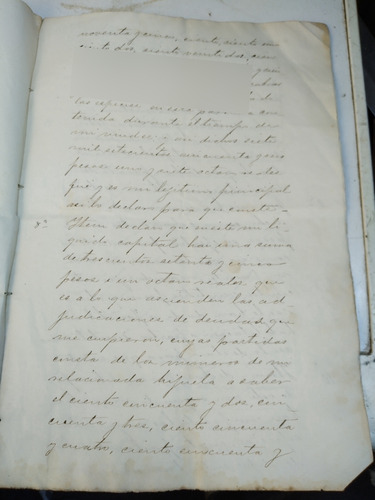 noventa y cinco, ciento, ciento
ciento dos, ciento veinte dos,
las especies en
tenida durante el tiempo de
mi viudez
mil setecientos cuarenta y un
pesos uno y siete octavos
fué y es mi legitimo principal
asi lo declaro para que conste
8º Item declaro que existe mi li
quido capital hai una suma
de doscientos setenta y cinco
pesos i un octavo reales que
es a lo que ascienden las ad
judicaciones de deudas que
me cupieron, cuyas partidas
constan de los numeros de mi
relacionada hijuela a saber
el ciento cincuenta y dos, cin
cuenta y tres, ciento cincuenta
y cuatro, ciento cincuenta y